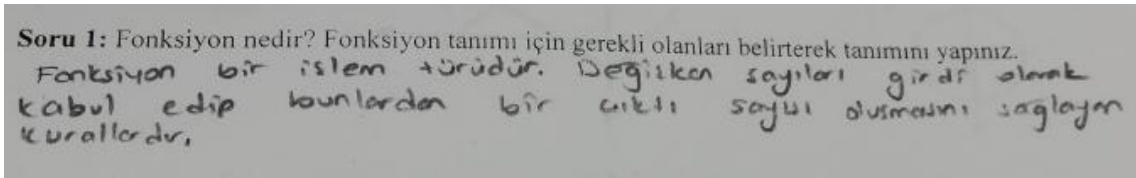 Soru 1: Fonksiyon nedir? Fonksiyon tanımı için gerekli olanları belirterek tanımını yapınız.
Fonksiyon bir islem türüdür. Değişken sayıları girdi olarak
kabul edip bunlardan bir çıktı sayısı oluşmasını sağlayan
kurallardır.